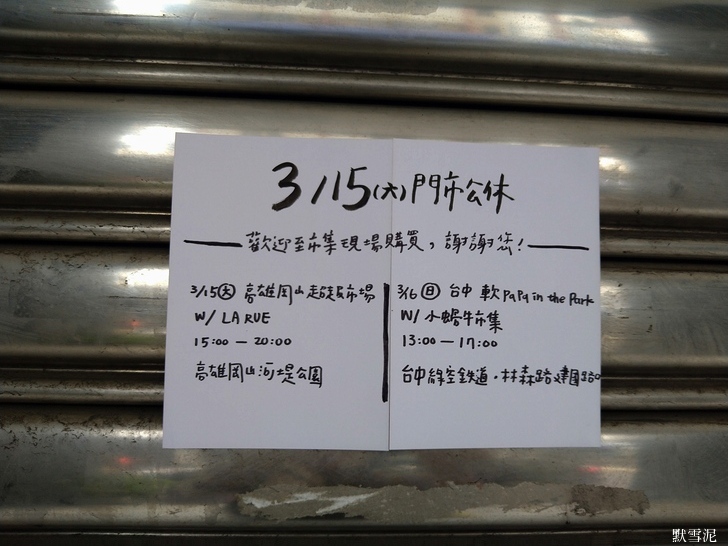 3/15(六)門市公休
歡迎至市集現場購買，謝謝您！
3/15(六) 高雄岡山
W/ LA RUE
15:00 — 20:00
高雄岡山河堤公園
3/16(日) 台中 軟 PaPa in the Park
W/ 小蝸牛市集
13:00 — 17:00
台中綠空鉄道・林森路建國路口
默雪泥